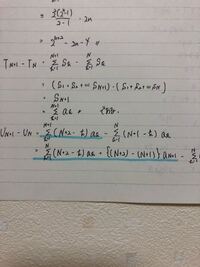 = 2(2ⁿ-1) / 2-1 - 2n
= 2ⁿ⁺² - 2n - 4 〃
T_N+1 - T_N = Σ(k=1→N+1) S_k - Σ(k=1→N) S_k
= (S₁ + S₂ + … + S_N+1) - (S₁ + S₂ + … + S_N)
= S_N+1
= Σ(k=1→N+1) a_k
U_N+1 - U_N = Σ(k=1→N+1) (N+2-k) a_k - Σ(k=1→N) (N+1-k) a_k
= Σ(k=1→N) (N+2-k) a_k + {(N+2)-(N+1)} a_N+1 - Σ